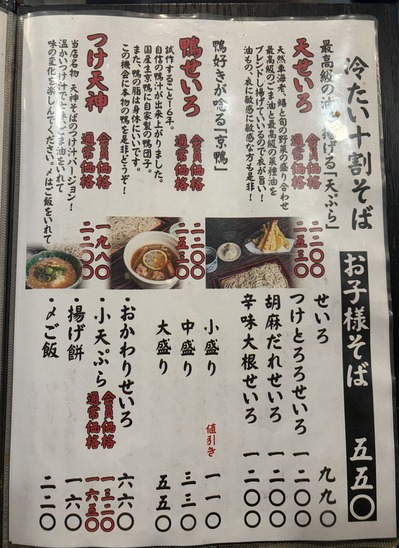 冷たい十割そば
お子様そば 五五〇
最高級の油で揚げる「天ぷら」
天せいろ
会員価格 二二〇〇
通常価格 二五三〇
天然車海老、鱚と旬の野菜の盛り合わせ
最高級のごま油と最高級の菜種油を
ブレンドし揚げているので衣が旨い!
油もの、衣に敏感な方も是非!
鴨好きが唸る「京鴨」
鴨せいろ
会員価格 二二〇〇
通常価格 二五三〇
試作すること16年。
自信の鴨汁が出来上がりました。
国産生京鴨に自家製の鴨団子。
また、鴨の脂は身体にいいです。
この機会に本物の鴨を是非どうぞ!
つけ天神
会員価格 一九八〇
通常価格 二二〇〇
当店名物 天神そばのつけ汁バージョン!
温かいつけ汁で
味の変化を楽しんでください。〆はご飯をいれて
せいろ 九九〇
つけとろろせいろ 一二〇〇
胡麻だれせいろ 一二〇〇
辛味大根せいろ 一二〇〇
小盛り 値引き 一一〇
中盛り 三三〇
大盛り 五五〇
・おかわりせいろ 六六〇
・小天ぷら 会員価格 一三二〇
通常価格 一六五〇
・揚げ餅 一六〇
・〆ご飯 二二〇